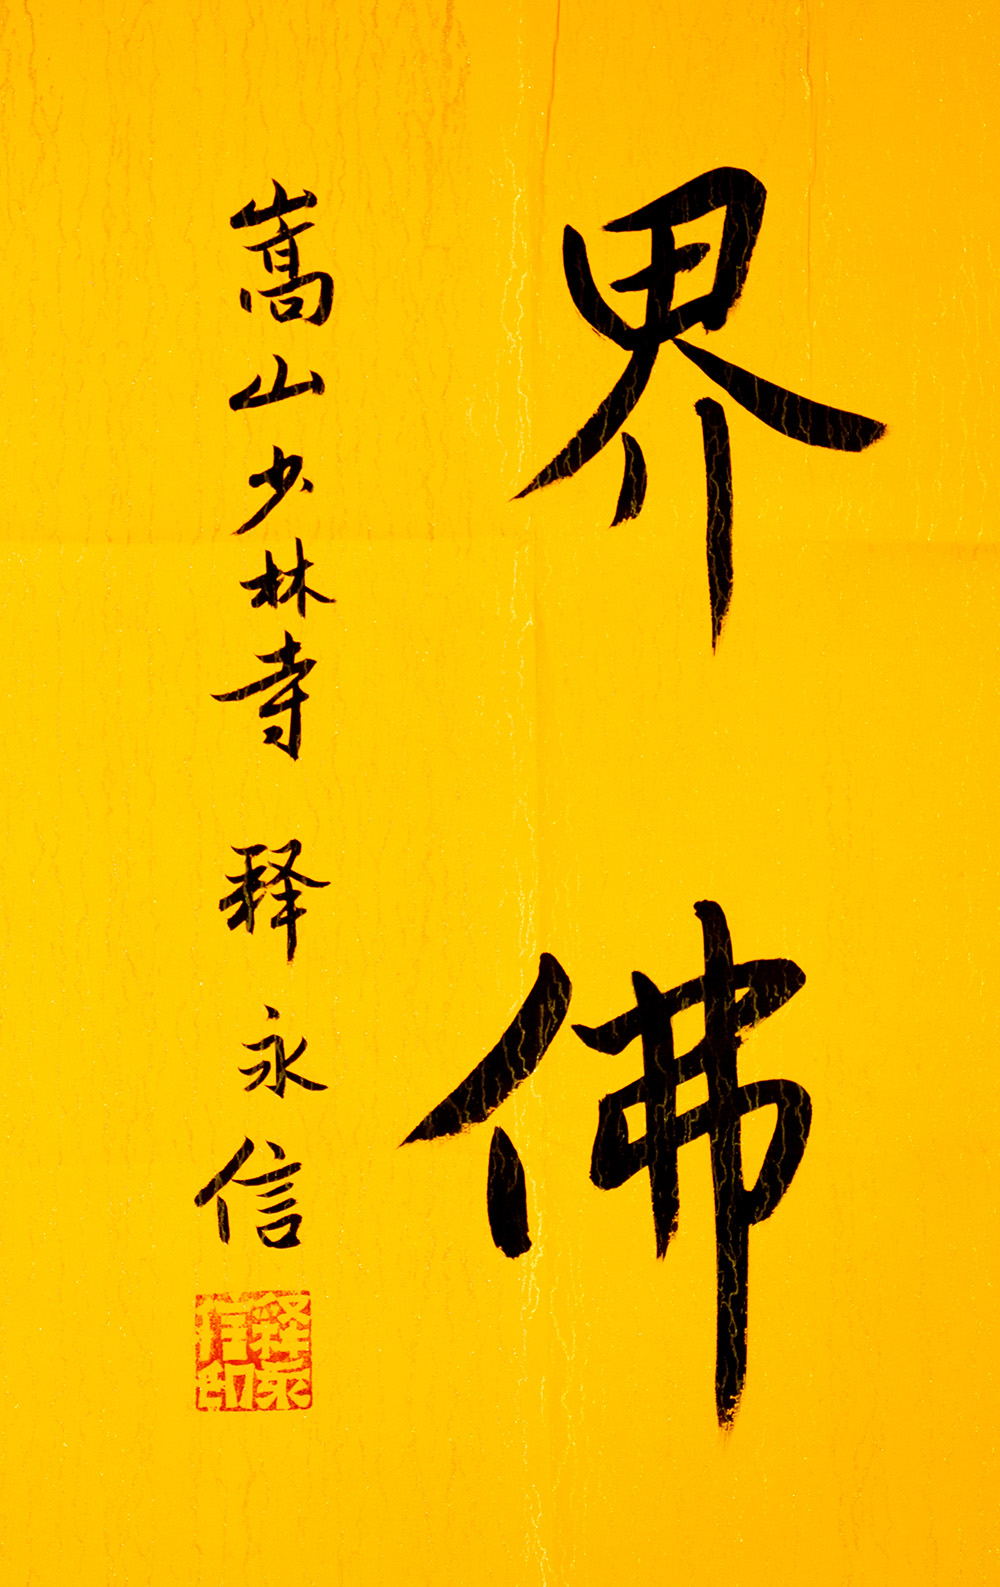 界佛
嵩山少林寺 释永信
释永信印